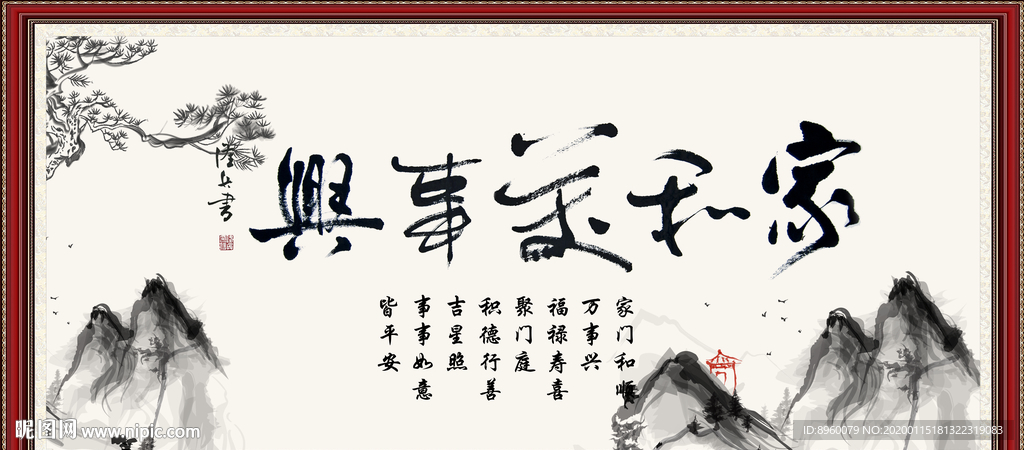 家和万事兴
陸兵書
家门和顺
万事兴
福禄寿喜
聚门庭
积德行善
吉星照
事事如意
皆平安
昵图网 www.nipic.com
ID:8960079 NO:20200115181322319083